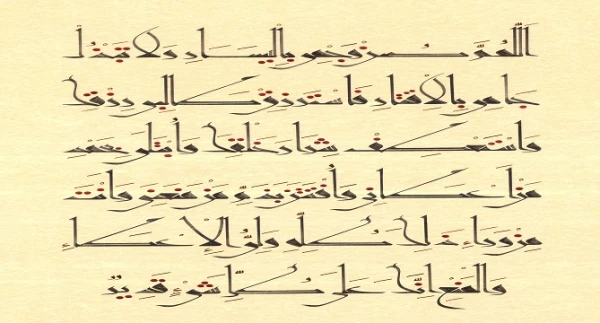 اَللّٰهُمَّ صُنْ وَجْهِي بِالْيَسَارِ وَلَا تَبْذُلْ
جَاهِي بِالْاِقْتَارِ فَاَسْتَرْزِقَ طَالِبِي رِزْقِكَ
وَاَسْتَعْطِفَ شِرَارَ خَلْقِكَ وَاُبْتَلَى بِحَمْدِ
مَنْ اَعْطَانِي وَاُفْتَتَنَ بِذَمِّ مَنْ مَنَعَنِي وَاَنْتَ
مِنْ وَرَاءِ ذَلِكَ كُلِّهِ وَلِيُّ الْاِعْطَاءِ
وَالْمَنْعِ اِنَّكَ عَلَى كُلِّ شَيْءٍ قَدِيرٌ